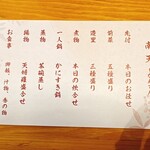 先付　本日のお浸せ
前菜　三種盛り
造里　三種盛り
煮物　本日の炊合せ
一人鍋　かにすき鍋
蒸物　茶碗蒸し
揚物　天婦羅盛合せ
お食事　御飯、汁物、香の物